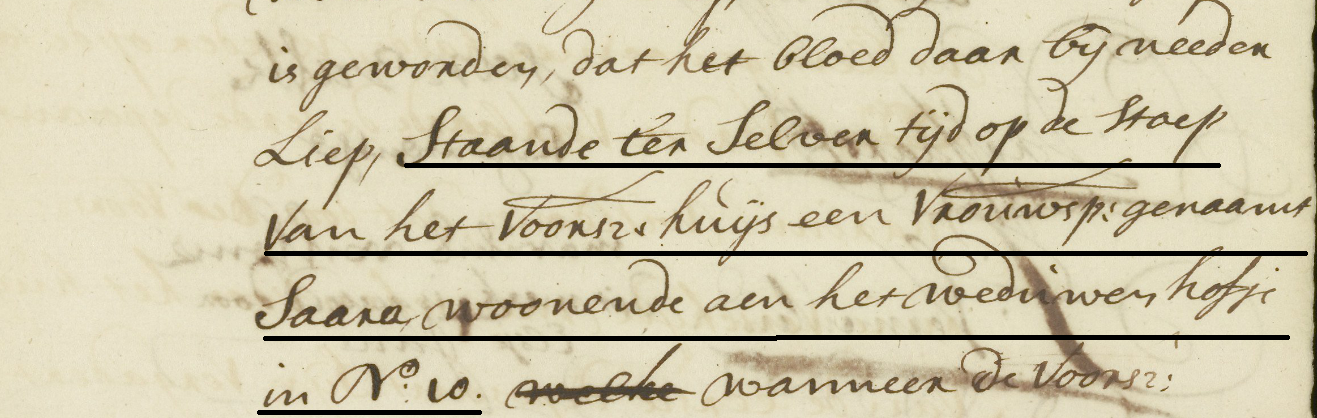 is geworden, dat het bloed daar bij needer
Liep, Staande ter Selver tijd op de Stoep
Van het Voorsz: huijs een Vrouwsp: genaamt
Saara, woonende aen het weduwen hofje
in No. 10. welke wanneer de Voorsz: